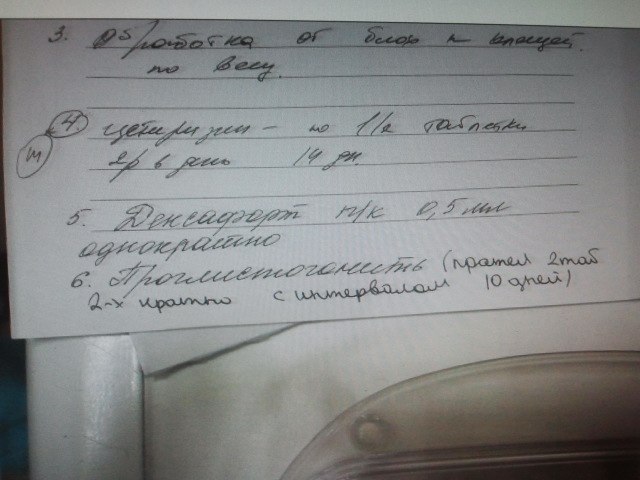 3. Обработка от блох и клещей
по весу.
4. цетиризин – по 1/2 таблетки
2р в день 14 дн.
5. Дексафорт п/к 0,5 мл
однократно
6. Проглистогонить (прател 2таб
2-х кратно с интервалом 10 дней)